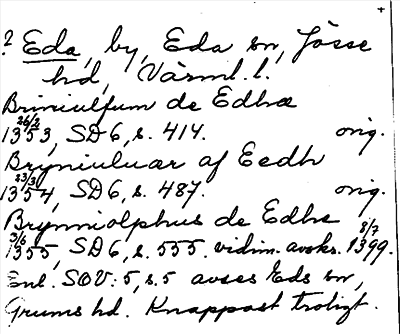 ? Eda, by, Eda sn, Jösse
hd, Värml. l.
Briniulfum de Edhæ
26/2 1353, SD 6, s. 414. orig.
Bryniuluar af Eedh
23/3 1354, SD 6, s. 487. orig.
Brynniolphus de Edhe
3/6 1355, SD 6, s. 555. vidim. avskr. 8/7 1399.
Enl. SOV: 5, s. 5 avses Eds sn,
Grums hd. Knappast troligt.